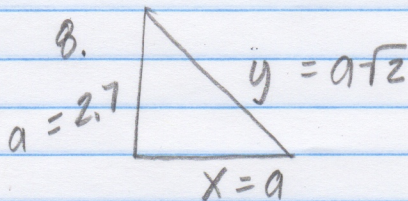 8.
a = 2.7
y = a√2
x = a